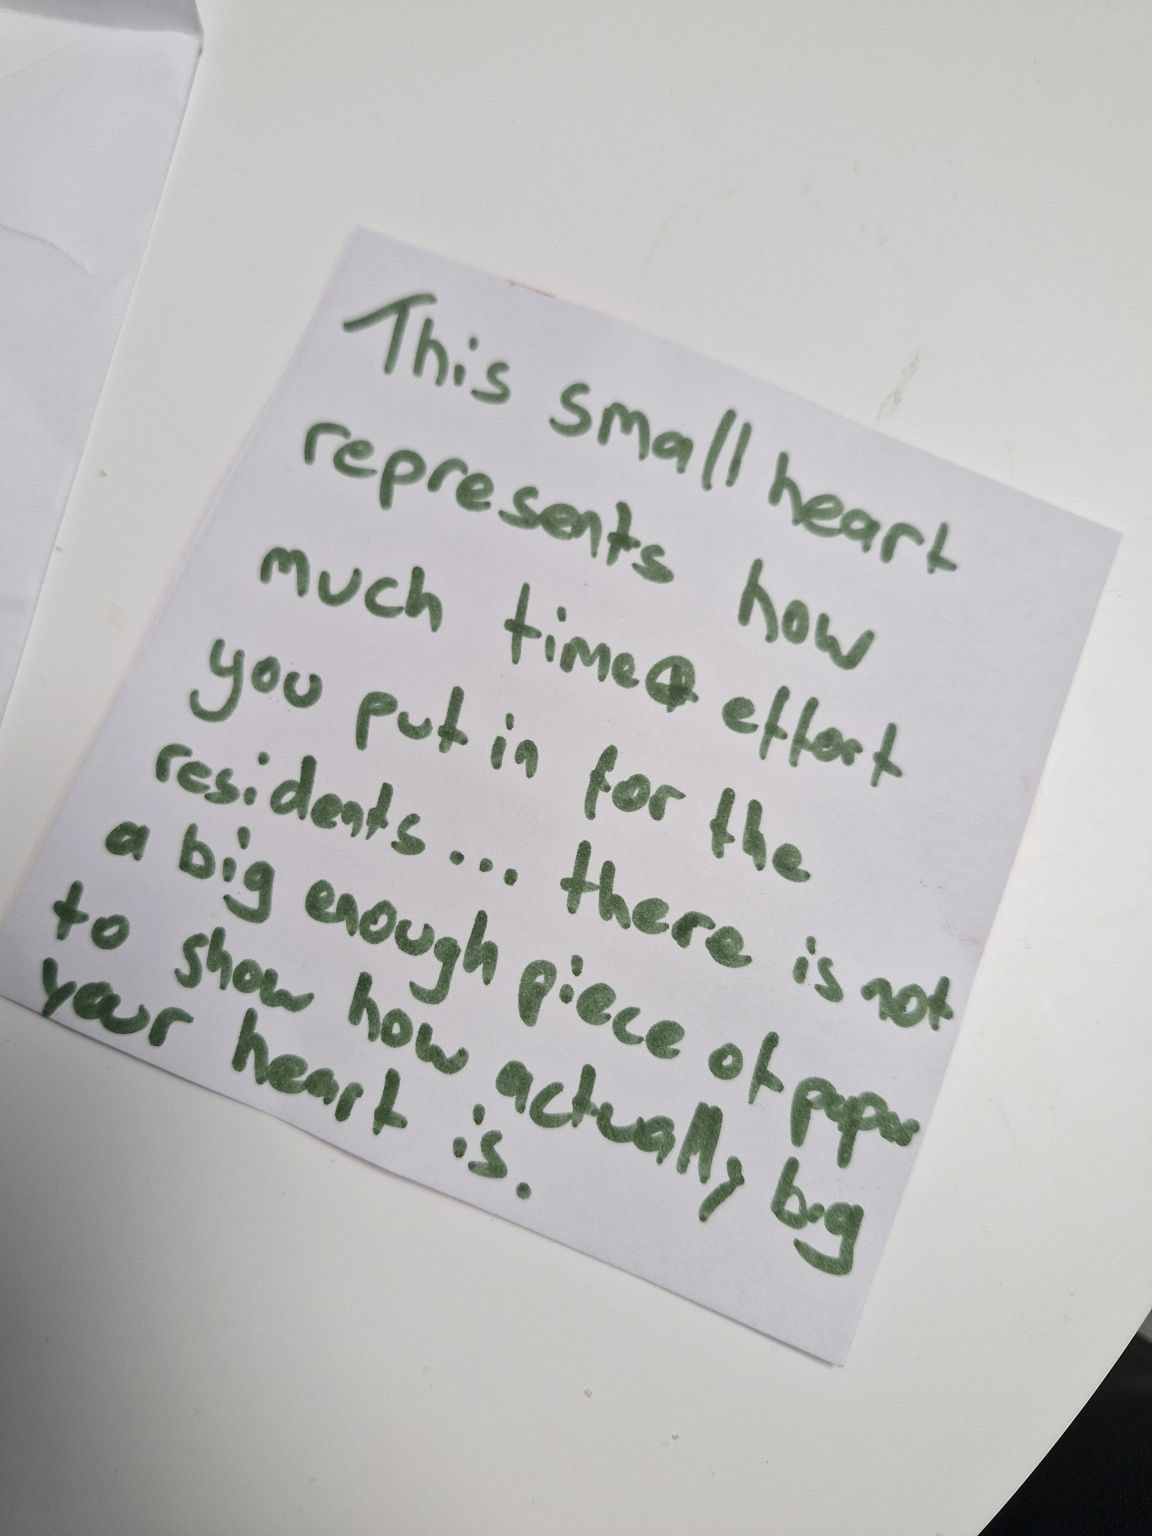 This small heart
represents how
much time & effort
you put in for the
residents... there is not
a big enough piece of paper
to show how actually big
your heart is.